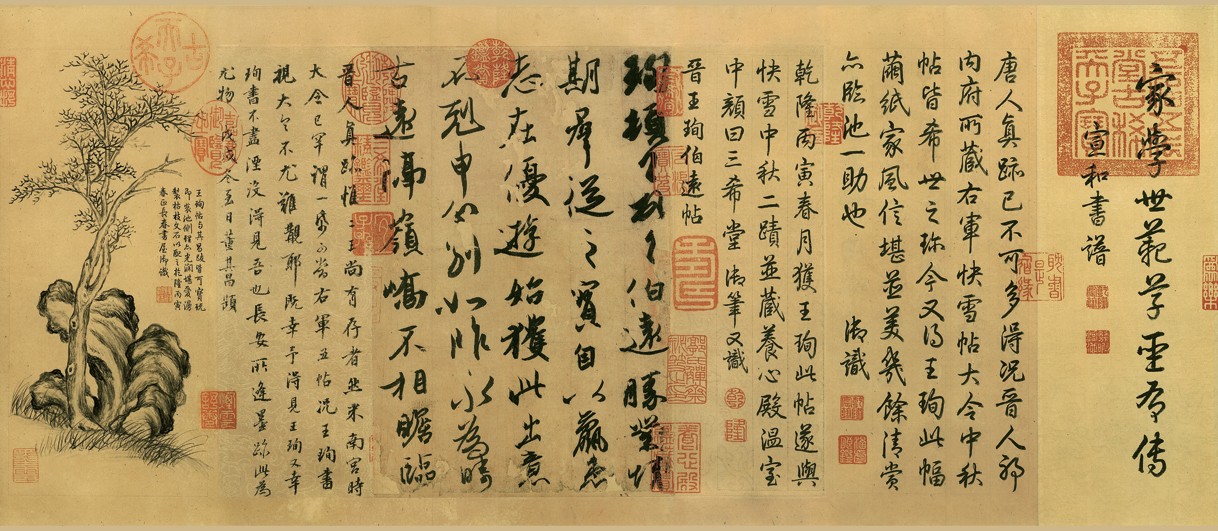 家學世範草聖有傳
宣和書譜
五福五代堂古稀天子寶
唐人真跡已不可多得况晉人邪
内府所藏右軍快雪帖大令中秋
帖皆希世之珍今又得王珣此幅
繭紙家風信堪並美幾餘清賞
亦臨池一助也 御識
乾隆丙寅春月獲王珣此帖遂與
快雪中秋二蹟並藏養心殿温室
中顏曰三希堂 御筆又識
乾
隆
晉王珣伯遠帖
珣頓首頓首伯遠勝業情
期羣從之寶自以羸患
志在優遊始獲此出意
不剋申分別如昨永為疇
古遠隔嶺嶠不相瞻臨
晉人真跡惟二王尚有存者然米南宮時
大令已罕謂一紙可當右軍五帖况王珣書
視大令不尤難覯耶既幸予得見王珣又幸
珣書不盡湮沒得見吾也長安所逢墨跡此為
尤物 戊戌冬至日董其昌題
古希天子
王珣帖與其昌跋皆可寶玩
即裝池側理亦光潤堪愛漫
製枯枝文石以配之乾隆丙寅
春正長春書屋御識